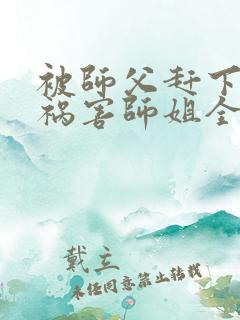 被師父赶下
祸害師姐全
戴立
未经同意禁止转载